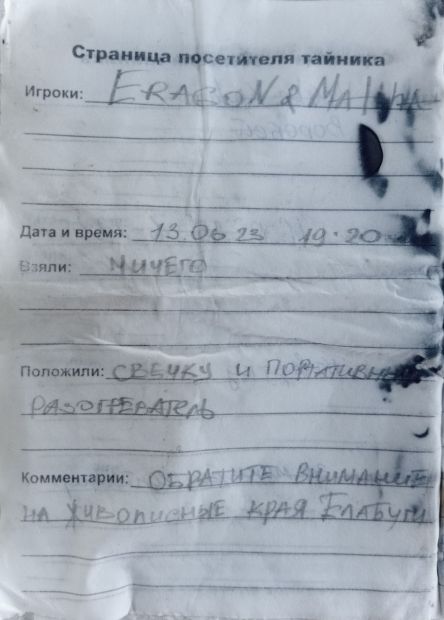 Страница посетителя тайника
Игроки: ERAGON & MALINA
Дата и время: 13.06 23 19:20
Взяли: НИЧЕГО
Положили: СВЕЧКУ И ПОРТАТИВНЫЙ
РАЗОГРЕВАТЕЛЬ
Комментарии: ОБРАТИТЕ ВНИМАНИЕ
НА ЖИВОПИСНЫЕ КРАЯ ЕЛАБУГИ